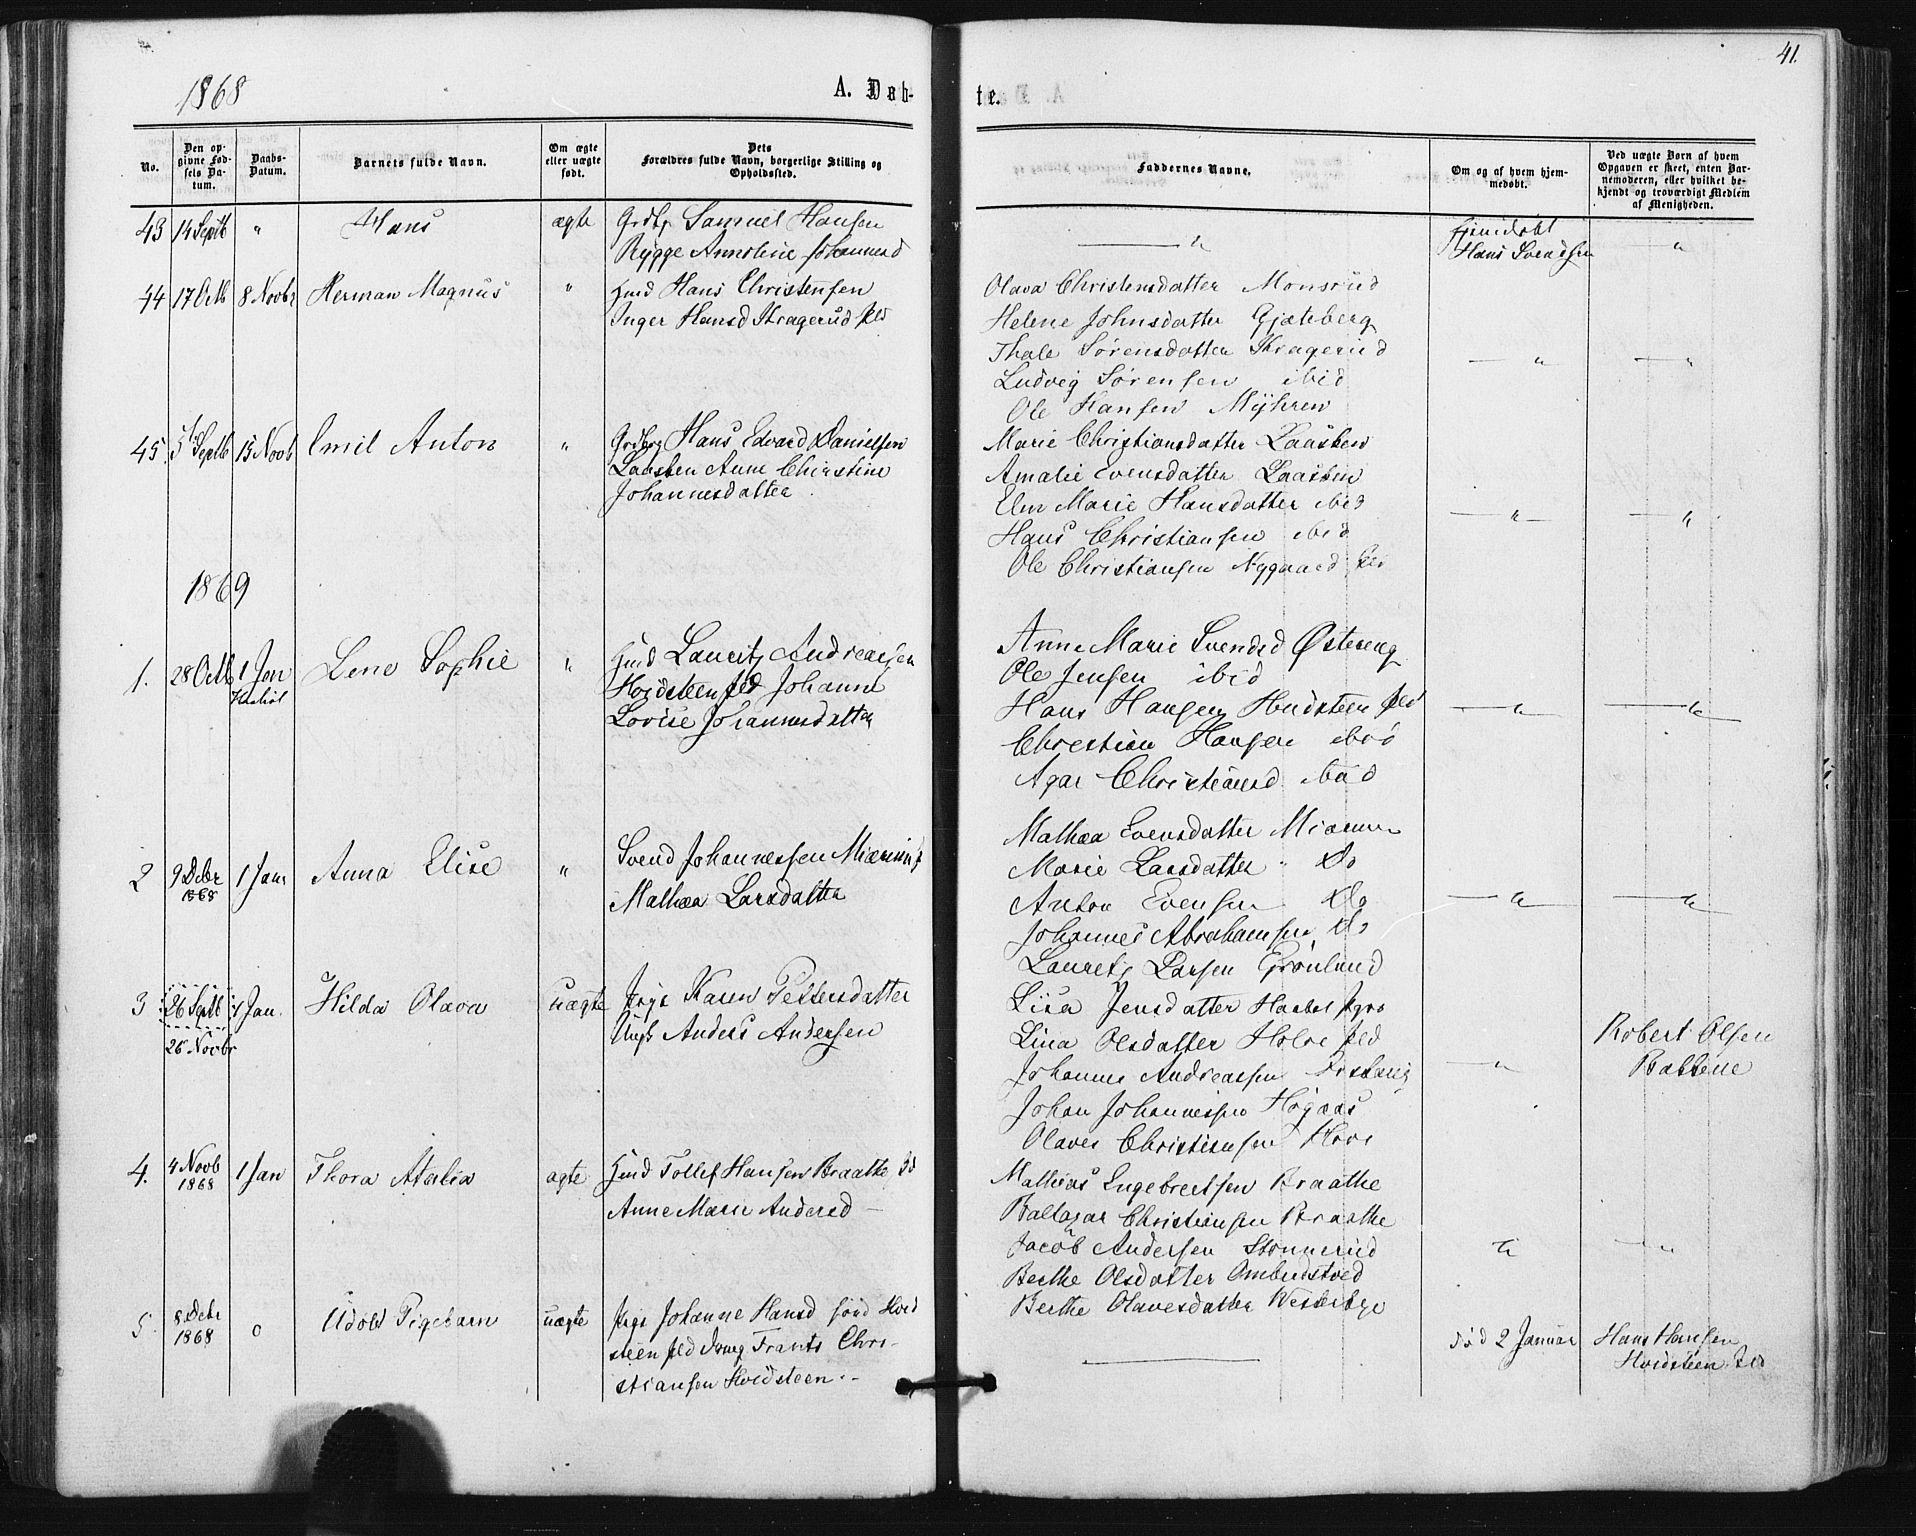 41.
1868
A. Døb-
te.
No.
Den op-
givne Fød-
sels Da-
tum.
Daabs-
Datum.
Barnets fulde Navn.
Om ægte
eller uægte
født.
Dets
Forældres fulde Navn, borgerlige Stilling og
Opholdssted.
Faddernes Navne.
Om og af hvem hjem-
medøbt.
Ved uægte Børn af hvem
Opgaven er skeet, enten Bar-
nemoderen, eller hvilket be-
kjendt og troværdigt Medlem
af Menigheden.
43 14 Septb " Hans ægte Grdbr Samuel Hansen
Rygge Annoline Johannesd
— " Hjemdøbt
Hans Svendsen "
44 17 Octb 8 Novbr Herman Magnus " Hmd Hans Christensen
Inger Hansd Kragerud Eld
Olava Christensdatter Monsrud
Helene Johnsdatter Gjæteberg
Thale Sørensdatter Kragerud — " — "
Ludvig Sørensen ibid
Ole Hansen Myhren
45. 5 Septb 15 Novb Emil Anton " Grdbrg Hans Edvard Danielsen
Laasken Anne Christine
Johannesdatter.
Marie Christiansdatter Laasken
Amalie Evensdatter Laasken
Elen Marie Hansdatter ibid — " — "
Hans Christiansen ibid
Ole Christiansen Nygaard Eld
1869
1. 28 Octb 1 Jan Lene Sophie " Hmd Lauritz Andreassen
Hvidsteen Eld Johanne
Lovise Johannesdatter
Anne Marie Svendsd Østereng
Ole Jensen ibid
Hans Hansen Hvidsteen Eld — " — "
Christian Hansen ibid
Agar Christiansd ibid
2 9 Debr
1868 1 Jan Anna Elise " Svend Johannessen
Mathea Larsdatter
Mathea Evensdatter
Marie Larsdatter Do
Anton Evensen Do — " — "
Johannes Abrahamsen Do
Lauritz Larsen Grønlund
3 26 Septb
26 Novbr 1 Jan. Hilda Olava uægte Pige Karen Pettersdatter
Ungk Anders Andersen
Lisa Jensdatter
Lina Olsdatter Holve Eld
Johannes Andreassen — "
Johan Johannessen Høgaas
Olaves Christiansen
Robert Olsen
4. 4 Novb
1868 1 Jan Thora Atalia ægte Hmd Tollef Hansen Braathe
Anne Marie Andersd —
Mathias Engebretsen Braathe
Baltazar Christiansen Braathe
Jacob Andersen Stonnerud " — "
Berthe Olsdatter Ombudstved
Berthe Olavesdatter Westerbye
5. 8 Debr
1868 o Udøbt Pigebarn uægte Pige Johanne Hansd født Hvid
steen Eld Frants Chri-
stiansen Hvidsteen.-
—
død 2 Januar Hans Hansen
Hvidsteen Eld